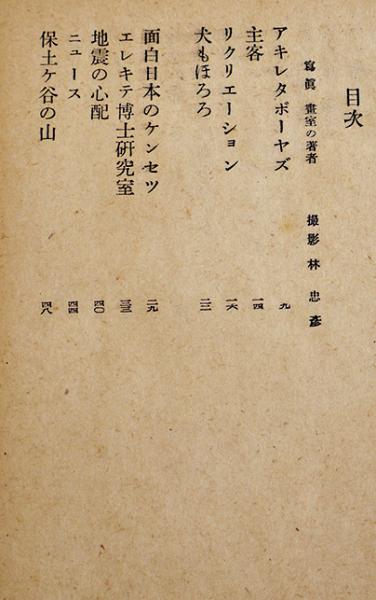 目次
寫眞 畫室の著者 撮影 林忠彦
アキレタボーヤズ 九
主客 一四
リクリエーション 一六
犬もほろろ 二二
面白日本のケンセツ 二九
エレキテ博士研究室 三三
地震の心配 四〇
ニュース 四四
保土ヶ谷の山 四八